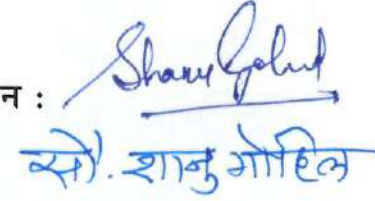 न : Shanu Gohil
सौ. शानु गोहिल